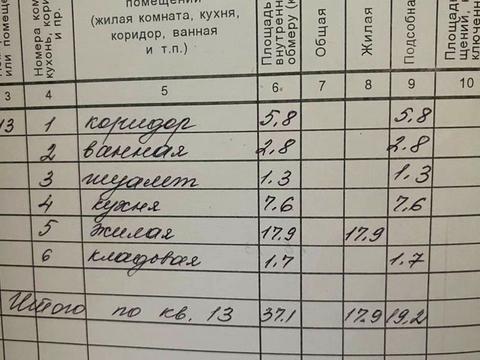 помещений
(жилая комната, кухня,
коридор, ванная
и т.п.)
или помеще
Номера ком
кухонь, кори
и пр.
Площадь
внутрен
обмеру (к
Общая
Жилая
Подсобна
Площадь
щений,
ключенн
3 4 5 6 7 8 9 10
13 1 коридор 5,8 5,8
2 ванная 2.8 2.8
3 туалет 1.3 1.3
4 кухня 7.6 7.6
5 жилая 17.9 17.9
6 кладовая 1.7 1.7
Итого по кв. 13 37.1 17.9 19.2